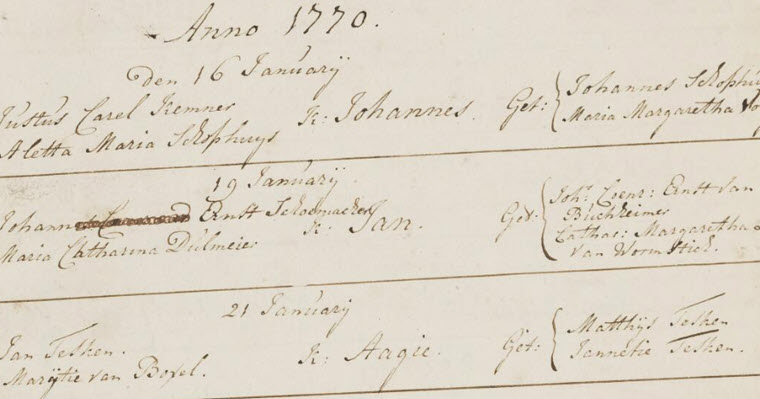 Anno 1770.
den 16 Januarij
Justus Carel Kemner
Aletta Maria Schophuys
K: Johannes.
Get:
Johannes
Maria Margaretha
19 Januarij
Ernst Schoemacker
Maria Catharina Dulmeier
K: Jan.
Get:
Joh: Coenr: Ernst van
Buchheimer
Cathar: Margaretha
van Wormstich.
21 Januarij
Jan Tesken.
Marijtie van Boxel.
K: Aagie.
Get:
Matthijs Tesken
Jannetie Tesken.